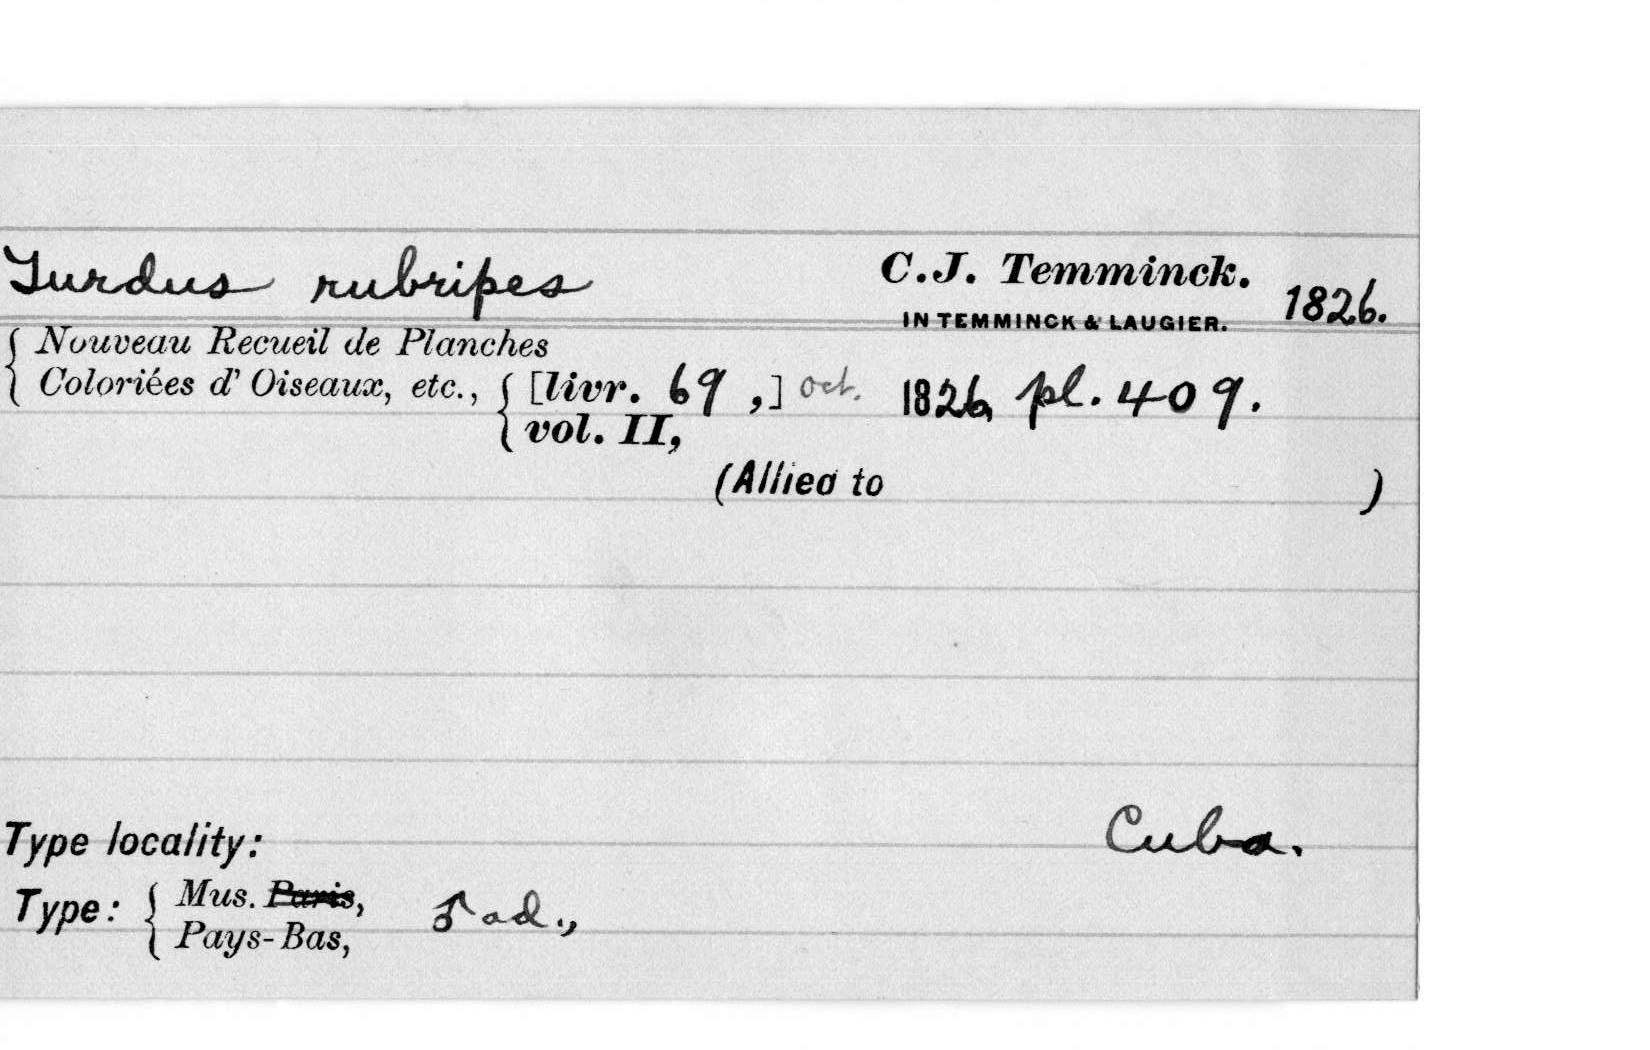 Turdus rubripes C.J. Temminck. 1826.
IN TEMMINCK & LAUGIER.
Nouveau Recueil de Planches
Coloriées d' Oiseaux, etc., [livr. 69 ,] oct. 1826, pl. 409.
vol. II,
(Allied to )
Type locality: Cuba.
Type: Mus. Paris, ♂ ad.,
Pays-Bas,